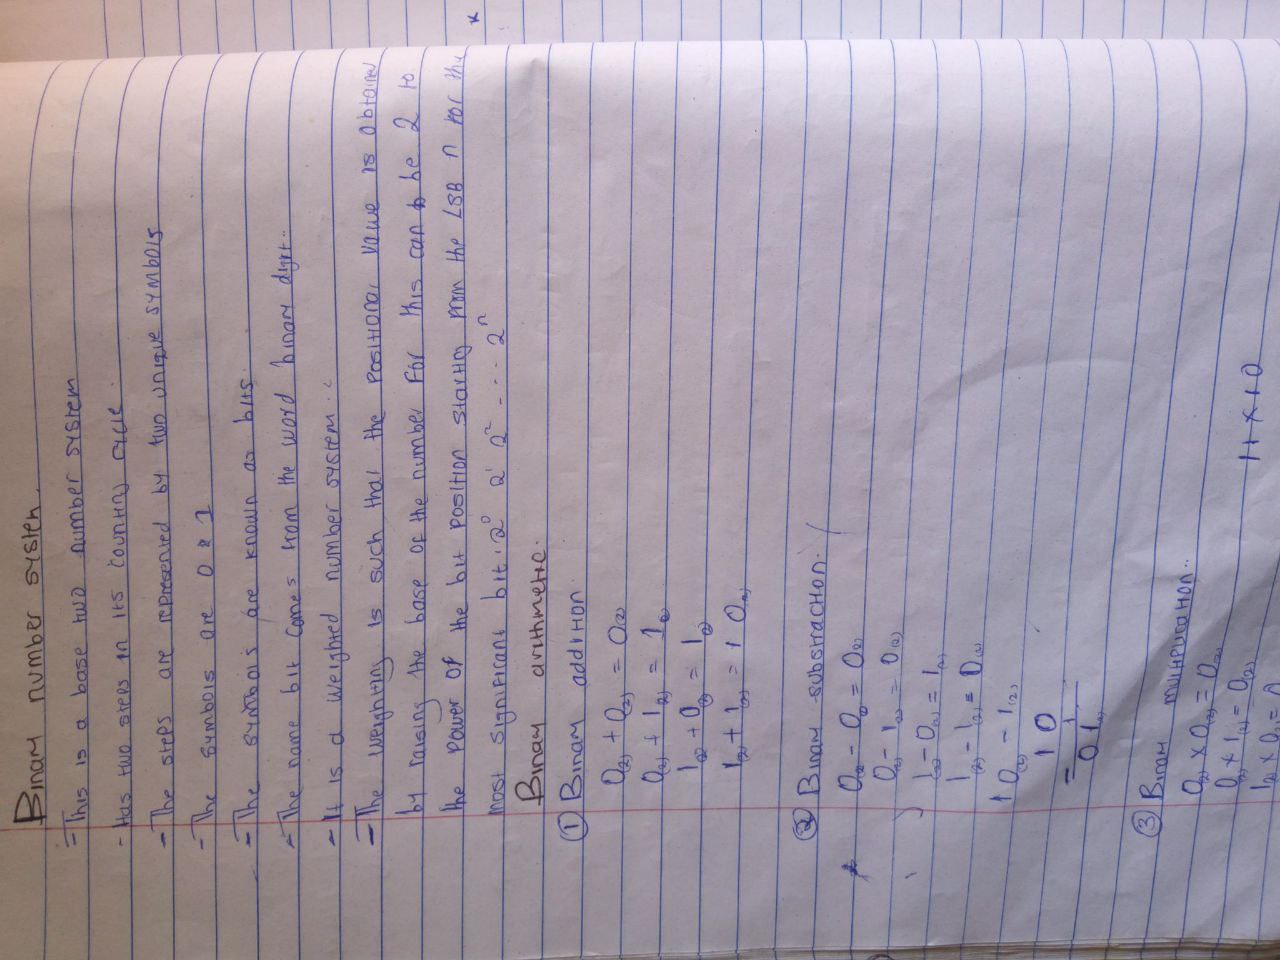 Binary number system.
- This is a base two number system
- Has two steps in its counting cycle.
- The steps are represented by two unique symbols
- The symbols are 0 & 1
- The symbols are known as bits.
- The name bit comes from the word binary digit..
- It is a weighted number system.
- The weighting is such that the positional value is obtained
by raising the base of the number for this can be 2 to
the power of the bit position starting from the LSB n for the
most significant bit. 2⁰ 2¹ 2² --- 2ⁿ
Binary arithmetic.
① Binary addition
0₍₂₎ + 0₍₂₎ = 0₍₂₎
0₍₂₎ + 1₍₂₎ = 1₍₂₎
1₍₂₎ + 0₍₂₎ = 1₍₂₎
1₍₂₎ + 1₍₂₎ = 1 0₍₂₎
② Binary substraction.
0₍₂₎ - 0₍₂₎ = 0₍₂₎
0₍₂₎ - 1₍₂₎ = 0₍₂₎
1₍₂₎ - 0₍₂₎ = 1₍₂₎
1₍₂₎ - 1₍₂₎ = 0₍₂₎
1 0₍₂₎ - 1₍₂₎
1 0
= 1
0 1₍₂₎
③ Binary multiplication..
0₍₂₎ × 0₍₂₎ = 0₍₂₎
0₍₂₎ × 1₍₂₎ = 0₍₂₎
1₍₂₎ × 0₍₂₎ = 0
11 × 10